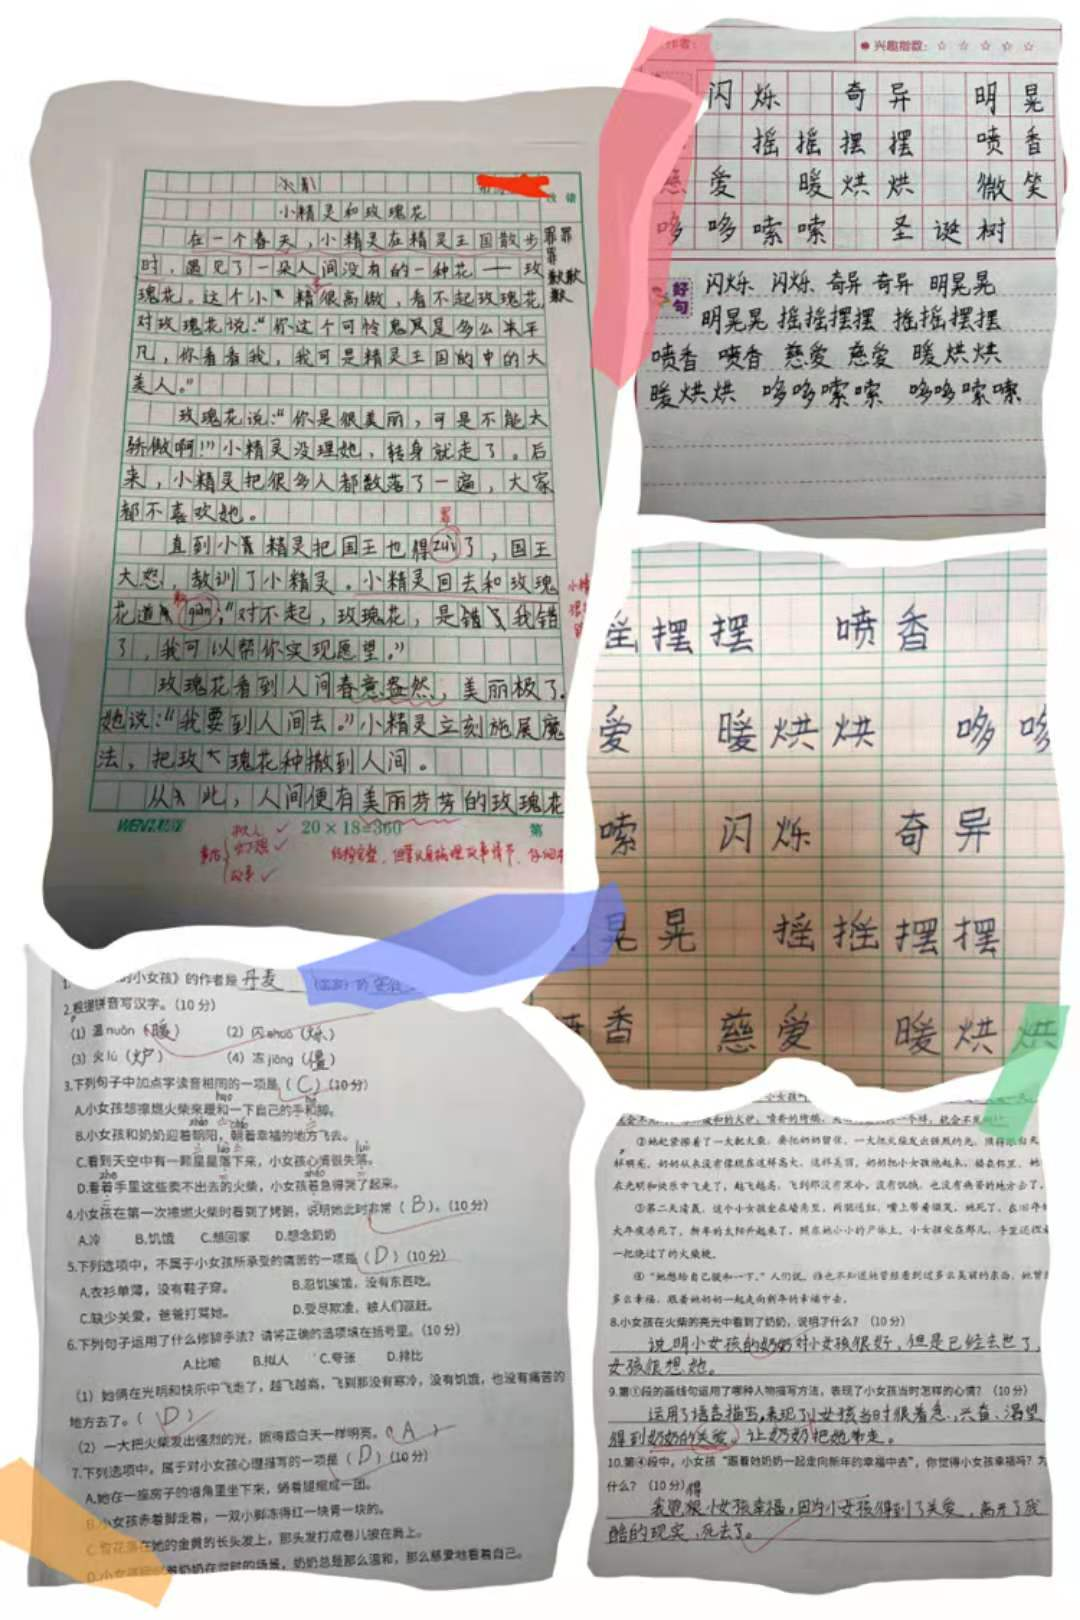 小精灵和玫瑰花
在一个春天，小精灵在精灵王国散步
时，遇见了一朵人间没有的一种花——玫
瑰花。这个小精很高傲，看不起玫瑰花，
对玫瑰花说：“你这个可怜鬼真是多么来平
凡，你看看我，我可是精灵王国的中的大
美人。”
玫瑰花说：“你是很美丽，可是不能太
骄傲啊！”小精灵没理她，转身就走了。后
来，小精灵把很多人都数落了一遍，大家
都不喜欢她。
直到小精灵把国王也得zuì了，国王
大怒，教训了小精灵。小精灵回去和玫瑰
花道qiàn：“对不起，玫瑰花，是错我错
了，我可以帮你实现愿望。”
玫瑰花看到人间春意盎然，美丽极了。
她说：“我要到人间去。”小精灵立刻施展魔
法，把玫瑰花种撒到人间。
从此，人间便有美丽芬芳的玫瑰花
罪罪
罪
歉歉
歉
20×18=360
第
拟人
幻想
故事
兴趣指数：☆ ☆ ☆ ☆ ☆
闪烁 奇异 明晃
摇摇摆摆 喷香
慈爱 暖烘烘 微笑
哆哆嗦嗦 圣诞树
好句
闪烁 闪烁 奇异 奇异 明晃晃
明晃晃 摇摇摆摆 摇摇摆摆
喷香 喷香 慈爱 慈爱 暖烘烘
暖烘烘 哆哆嗦嗦 哆哆嗦嗦
摇摆摆 喷香
爱 暖烘烘 哆哆
嗦 闪烁 奇异
晃晃 摇摇摆摆
喷香 慈爱 暖烘烘
的小女孩》的作者是 丹麦
2.根据拼音写汉字。（10 分）
（1）温nuǎn（暖） （2）闪shuò（烁）
（3）火lú（炉） （4）冻jiāng（僵）
3.下列句子中加点字读音相同的一项是（C）（10 分）
A.小女孩想擦燃火柴来暖和一下自己的手和脚。
B.小女孩和奶奶迎着朝阳，朝着幸福的地方飞去。
C.看到天空中有一颗星星落下来，小女孩心情很失落。
D.看着手里这些卖不出去的火柴，小女孩着急得哭了起来。
4.小女孩在第一次擦燃火柴时看到了烤鹅，说明她此时非常（B）。（10 分）
A.冷 B.饥饿 C.想回家 D.想念奶奶
5.下列选项中，不属于小女孩所承受的痛苦的一项是（D）（10 分）
A.衣衫单薄，没有鞋子穿。 B.忍饥挨饿，没有东西吃。
C.缺少关爱，爸爸打骂她。 D.受尽欺凌，被人们驱赶。
6.下列句子运用了什么修辞手法？请将正确的选项填在括号里。（10 分）
A.比喻 B.拟人 C.夸张 D.排比
（1）她俩在光明和快乐中飞走了，越飞越高，飞到那没有寒冷，没有饥饿，也没有痛苦的
地方去了。（D）
（2）一大把火柴发出强烈的光，照得跟白天一样明亮。（A）
7.下列选项中，属于对小女孩心理描写的一项是（D）（10 分）
A.她在一座房子的墙角里坐下来，蜷着腿缩成一团。
B.小女孩赤着脚走着，一双小脚冻得红一块青一块的。
C.雪花落在她的金黄的长头发上，那头发打成卷儿披在肩上。
②她赶紧擦着了一大把火柴，要把奶奶留住。一大把火柴发出强烈的光，照得跟白天
样明亮。奶奶从来没有像现在这样高大，这样美丽。奶奶把小女孩抱起来，搂在怀里。她
在光明和快乐中飞走了，越飞越高，飞到那没有寒冷，没有饥饿，也没有痛苦的地方去了。
③第二天清晨，这个小女孩坐在墙角里，两腮通红，嘴上带着微笑。她死了，在旧年的
大年夜冻死了。新年的太阳升起来了，照在她小小的尸体上。小女孩坐在那儿，手里还捏着
一把烧过了的火柴梗。
④“她想给自己暖和一下。”人们说。谁也不知道她曾经看到过多么美丽的东西，她曾经
多么幸福，跟着她奶奶一起走向新年的幸福中去。
8.小女孩在火柴的亮光中看到了奶奶，说明了什么？（10 分）
说明小女孩的奶奶对小女孩很好，但是已经去世了，
女孩很想她。
9.第①段的画线句运用了哪种人物描写方法，表现了小女孩当时怎样的心情？（10 分）
运用了语言描写，表现了小女孩当时很着急、兴奋、渴望
得到奶奶的关爱。让奶奶把她带走。
10.第④段中，小女孩“跟着她奶奶一起走向新年的幸福中去”，你觉得小女孩幸福吗？为
什么？（10 分）
我觉得很小女孩幸福，因为小女孩得到了关爱，离开了残
酷的现实，死去了。